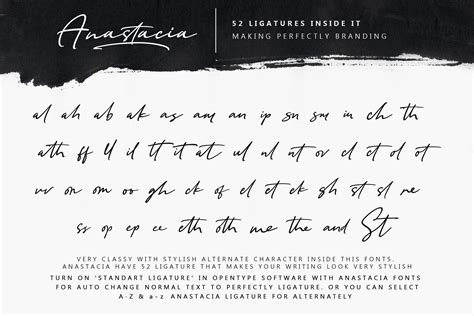 Anastacia
52 LIGATURES INSIDE IT
MAKING PERFECTLY BRANDING
al ah ab ak as am an ip sn sm in ch th
ath ff ll il tt it at ul nl ot or cl ct dl ot
ur on om oo gh ck of ek cl ch gh st sl re
ss op ep ee eth oth me the and St
VERY CLASSY WITH STYLISH ALTERNATE CHARACTER INSIDE THIS FONTS.
ANASTACIA HAVE 52 LIGATURE THAT MAKES YOUR WRITING LOOK VERY STYLISH
TURN ON 'STANDART LIGATURE' IN OPENTYPE SOFTWARE WITH ANASTACIA FONTS
FOR AUTO CHANGE NORMAL TEXT TO PERFECTLY LIGATURE. OR YOU CAN SELECT
A-Z & a-z ANASTACIA LIGATURE FOR ALTERNATELY